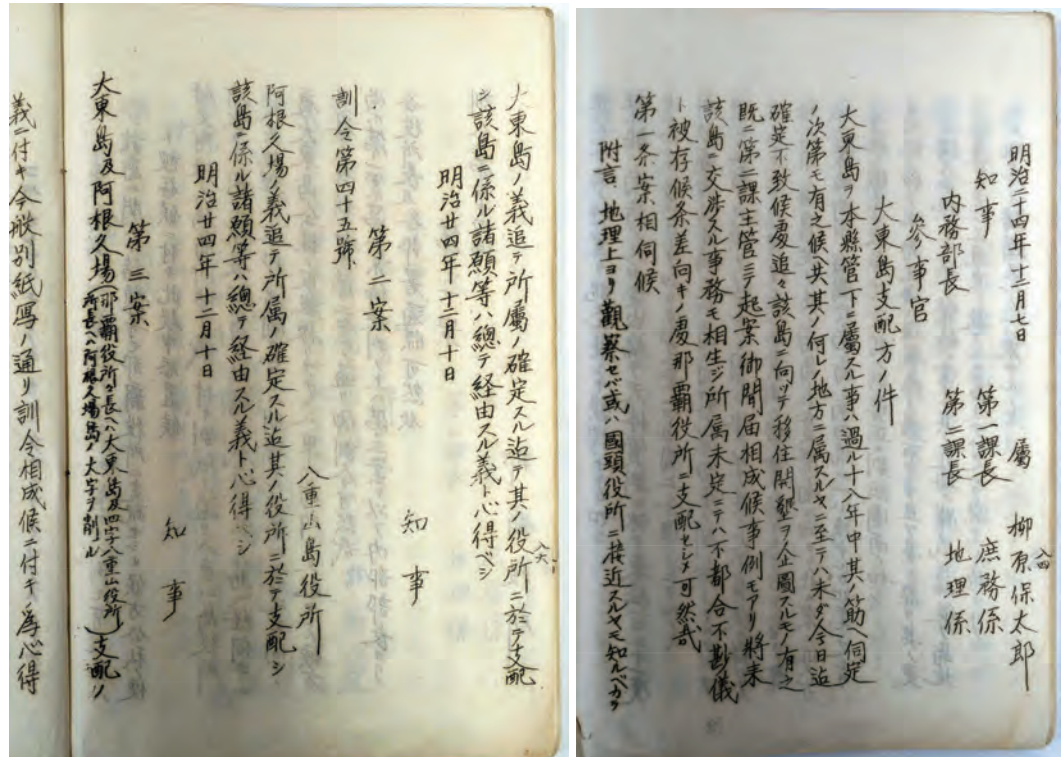 明治二十四年十二月七日
屬 柳原保太郎
知事
第一課長 庶務係
内務部長
第二課長 地理係
參事官
大東島支配方ノ件
大東島ヲ本縣管下ニ屬スル事ハ過ル十八年中其ノ筋ヘ伺定
ノ次第モ有之候ヘ共其ノ何レノ地方ニ屬スルヤニ至テハ未タ今日迠
確定不致候處追々該島ニ向ツテ移住開墾ヲ企圖スルモノ有之
既ニ第二課主管ニテ起案御聞届相成候事例モアリ將来
該島ニ交渉スル事務モ相生ジ所属未定ニテハ不都合不尠儀
ト被存候条差向キノ處那覇役所ニ支配セシメ可然哉
第一条案相伺候
附言 地理上ヨリ觀察セバ或ハ國頭役所ニ接近スルヤモ知ルベカラ
大東島ノ義追テ所屬ノ確定スル迠テ其ノ役所ニ於テ支配
シ該島ニ係ル諸願等ハ總テ経由スル義ト心得ベシ
明治廿四年十二月十日
知事
第二案
訓令第四十五號
八重山島役所
阿根久場ノ義追テ所属ノ確定スル迠其ノ役所ニ於テ支配シ
該島ニ係ル諸願等ハ總テ経由スル義ト心得ベシ
明治廿四年十二月十日
知事
第三案
大東島及阿根久場(那覇役所々長ヘハ大東島及四字八重山役所所長ヘハ阿根久場島ノ大字ヲ削ル)支配ノ
義ニ付キ今般別紙写ノ通リ訓令相成候ニ付キ為心得